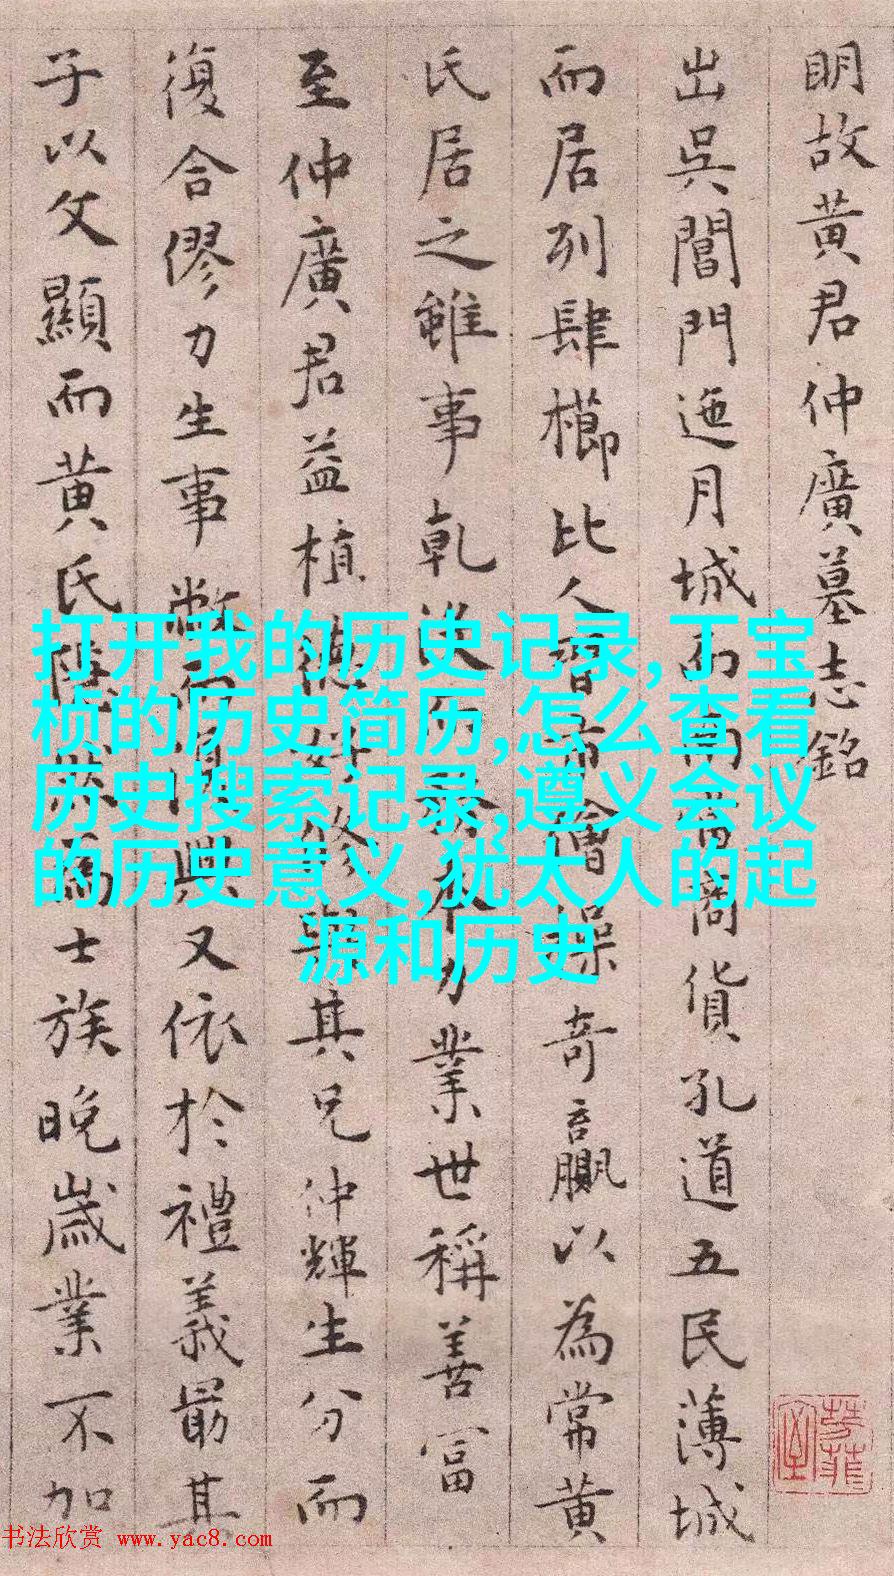 明故黄君仲廣墓志銘
出吳閶門迤月城而南為商貨孔道五民薄城
而居列肆櫛比人習市儈操奇贏以為常黄
氏居之雖事乾没而敦本力業世稱善富
至仲廣君益植德好修與其兄仲輝生分而
復合僇力生事敝而復興又依於禮義最其
子以文顯而黄氏隆然為士族晚歲業不加
打开我的历史记录,丁宝
桢的历史简历,怎么查看
历史搜索记录,遵义会议
的历史意义,犹太人的起
源和历史
书法欣赏 www.yac8.com